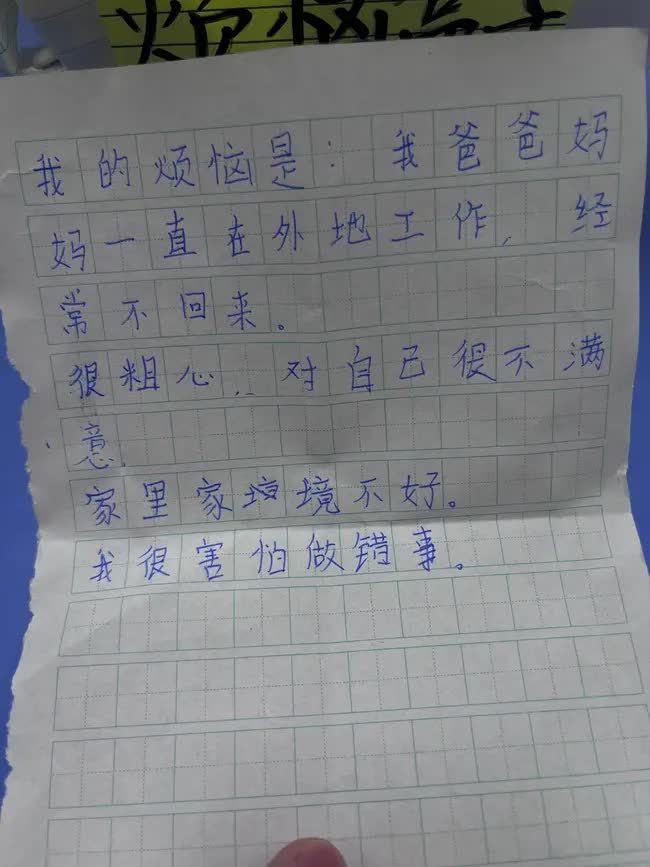 烦恼
我的烦恼是：我爸爸妈
妈一直在外地工作，经
常不回来。
很粗心，对自己很不满
意.
家里家境不好。
我很害怕做错事。